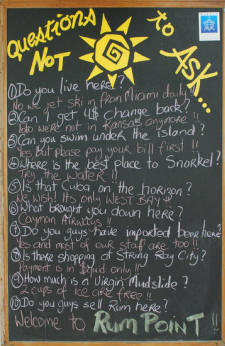 Questions
NOT
to
ASK...
① Do you live here?
No we jet ski in from Miami daily!!
② Can I get US change back?
Toto were not in Kansas anymore!!
③ Can you swim under the island?
Yes but please pay your bill first!!
④ Where is the best place to Snorkel?
Try the Water!!
⑤ Is that Cuba, on the horizon?
We Wish! Its only WEST BAY
⑥ What brought you down here?
Cayman Airways!!
⑦ Do you guys have imported beer here?
Yes and most of our staff are too!!
⑧ Is there shopping at Sting Ray City?
Payment is in Squid only!!
⑨ How much is a Virgin Mudslide?
2 cups of ice are free!!
⑩ Do you guys sell Rum here?
Welcome to RUM POINT!!